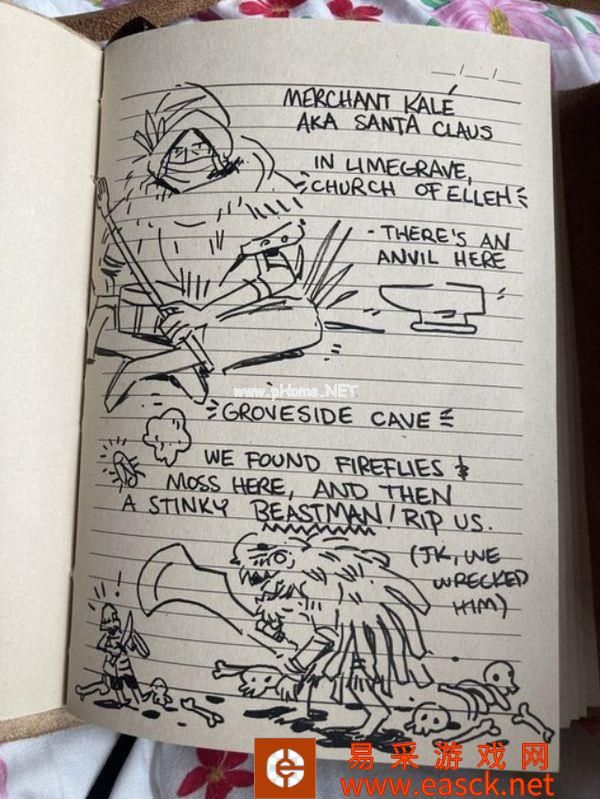 __/__/__
MERCHANT KALÉ
AKA SANTA CLAUS
IN LIMEGRAVE,
CHURCH OF ELLEH
- THERE'S AN
ANVIL HERE
www.pHome.NET
GROVESIDE CAVE
WE FOUND FIREFLIES &
MOSS HERE, AND THEN
A STINKY BEASTMAN! RIP US.
(JK, WE
WRECKED
HIM)
!!
易采游戏网
www.easck.net